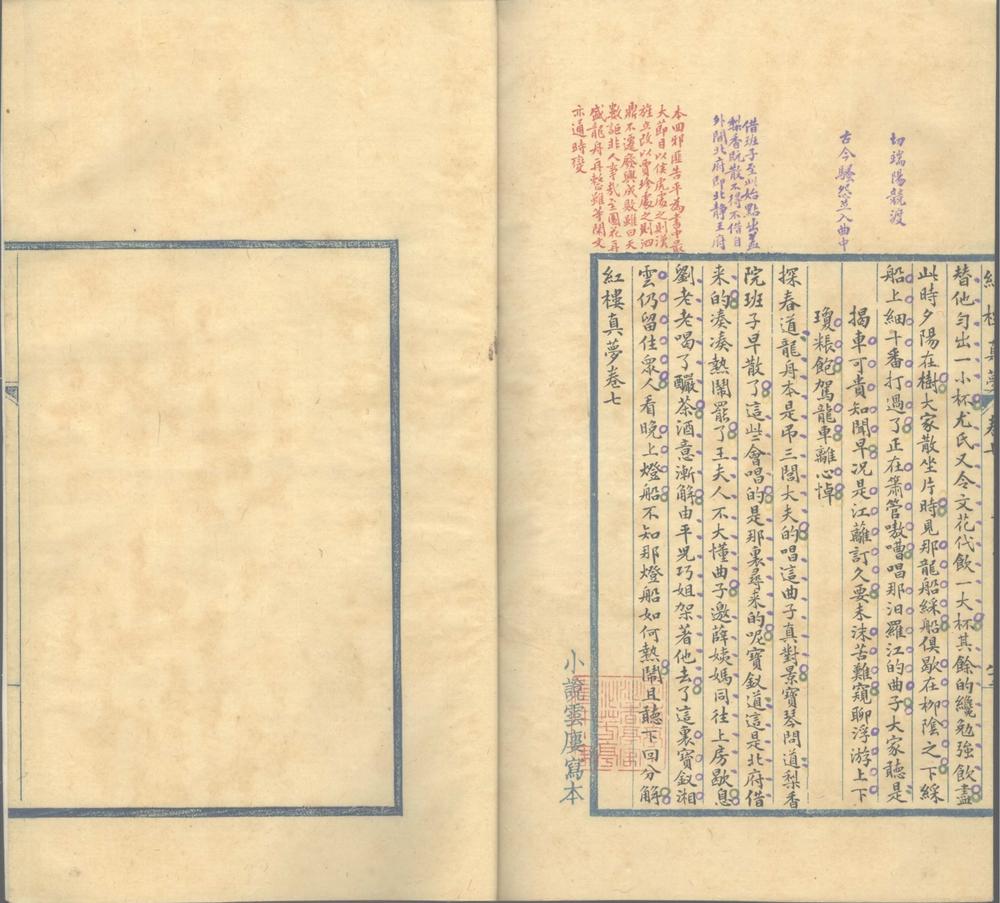 切瑞陽競渡
古今騷怨並入曲中
借班子至此始點出蓋
梨香阮散不得不借自
外間北府即北靜王府
本回邪匪告平為書中最
大節目以侯虎處之則漢
旌立改以賈珍處之則泗
鼎不遷廢興成敗雖曰天
數詎非人事哉至園花再
盛龍舟再整雖等閒文
亦通時變
紅樓真夢 卷七
替他勻出一小杯尤氏又令文花代飲一大杯其餘的纔勉強飲盡
此時夕陽在樹大家散坐片時見那龍船綵船俱歇在柳陰之下綵
船上細十番打過了正在簫管嗷嘈唱那汨羅江的曲子大家聽是
揭車可貴知聞早況是江蘺訂久要未沫苦難窺聊浮游上下
瓊粻飽駕龍車離心悼
探春道龍舟本是吊三閭大夫的唱這曲子真對景寶琴問道梨香
院班子早散了這些會唱的是那裏尋來的呢寶釵道這是北府借
來的湊湊熱鬧罷了王夫人不大懂曲子邀薛姨媽同往上房歇息
劉老老喝了釅茶酒意漸解由平兒巧姐架著他去了這裏寶釵湘
雲仍留住衆人看晚上燈船不知那燈船如何熱鬧且聽下回分解
紅樓真夢卷七
小說雲廔寫本